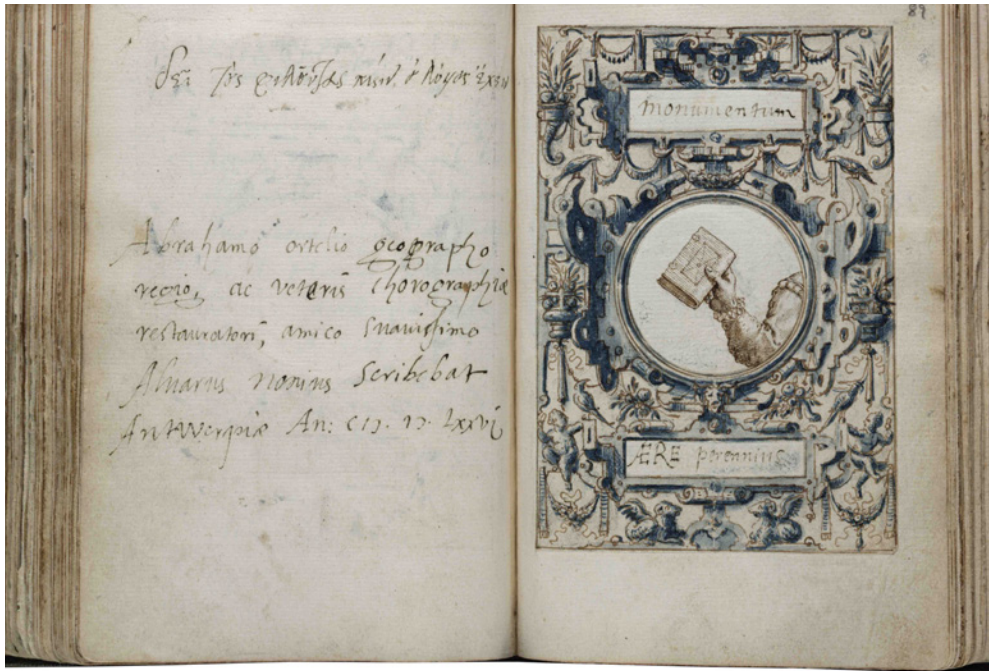 δεῖ τῆς ὁ λόγος ἔχειν
Abrahamo ortelio geographo
regio, ac veteris Chorographiæ
restauratori, amico suauissimo
Aluarus nonius Scribebat
Antwerpiæ An: CIƆ. IƆ. LXXVI
89
monumentum
ÆRE perennius